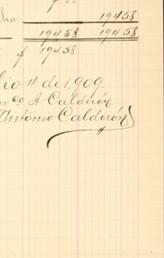 194 58
194 58 194 58
$ 194 58
de 1,909.
A Calderón
Antonio Calderón